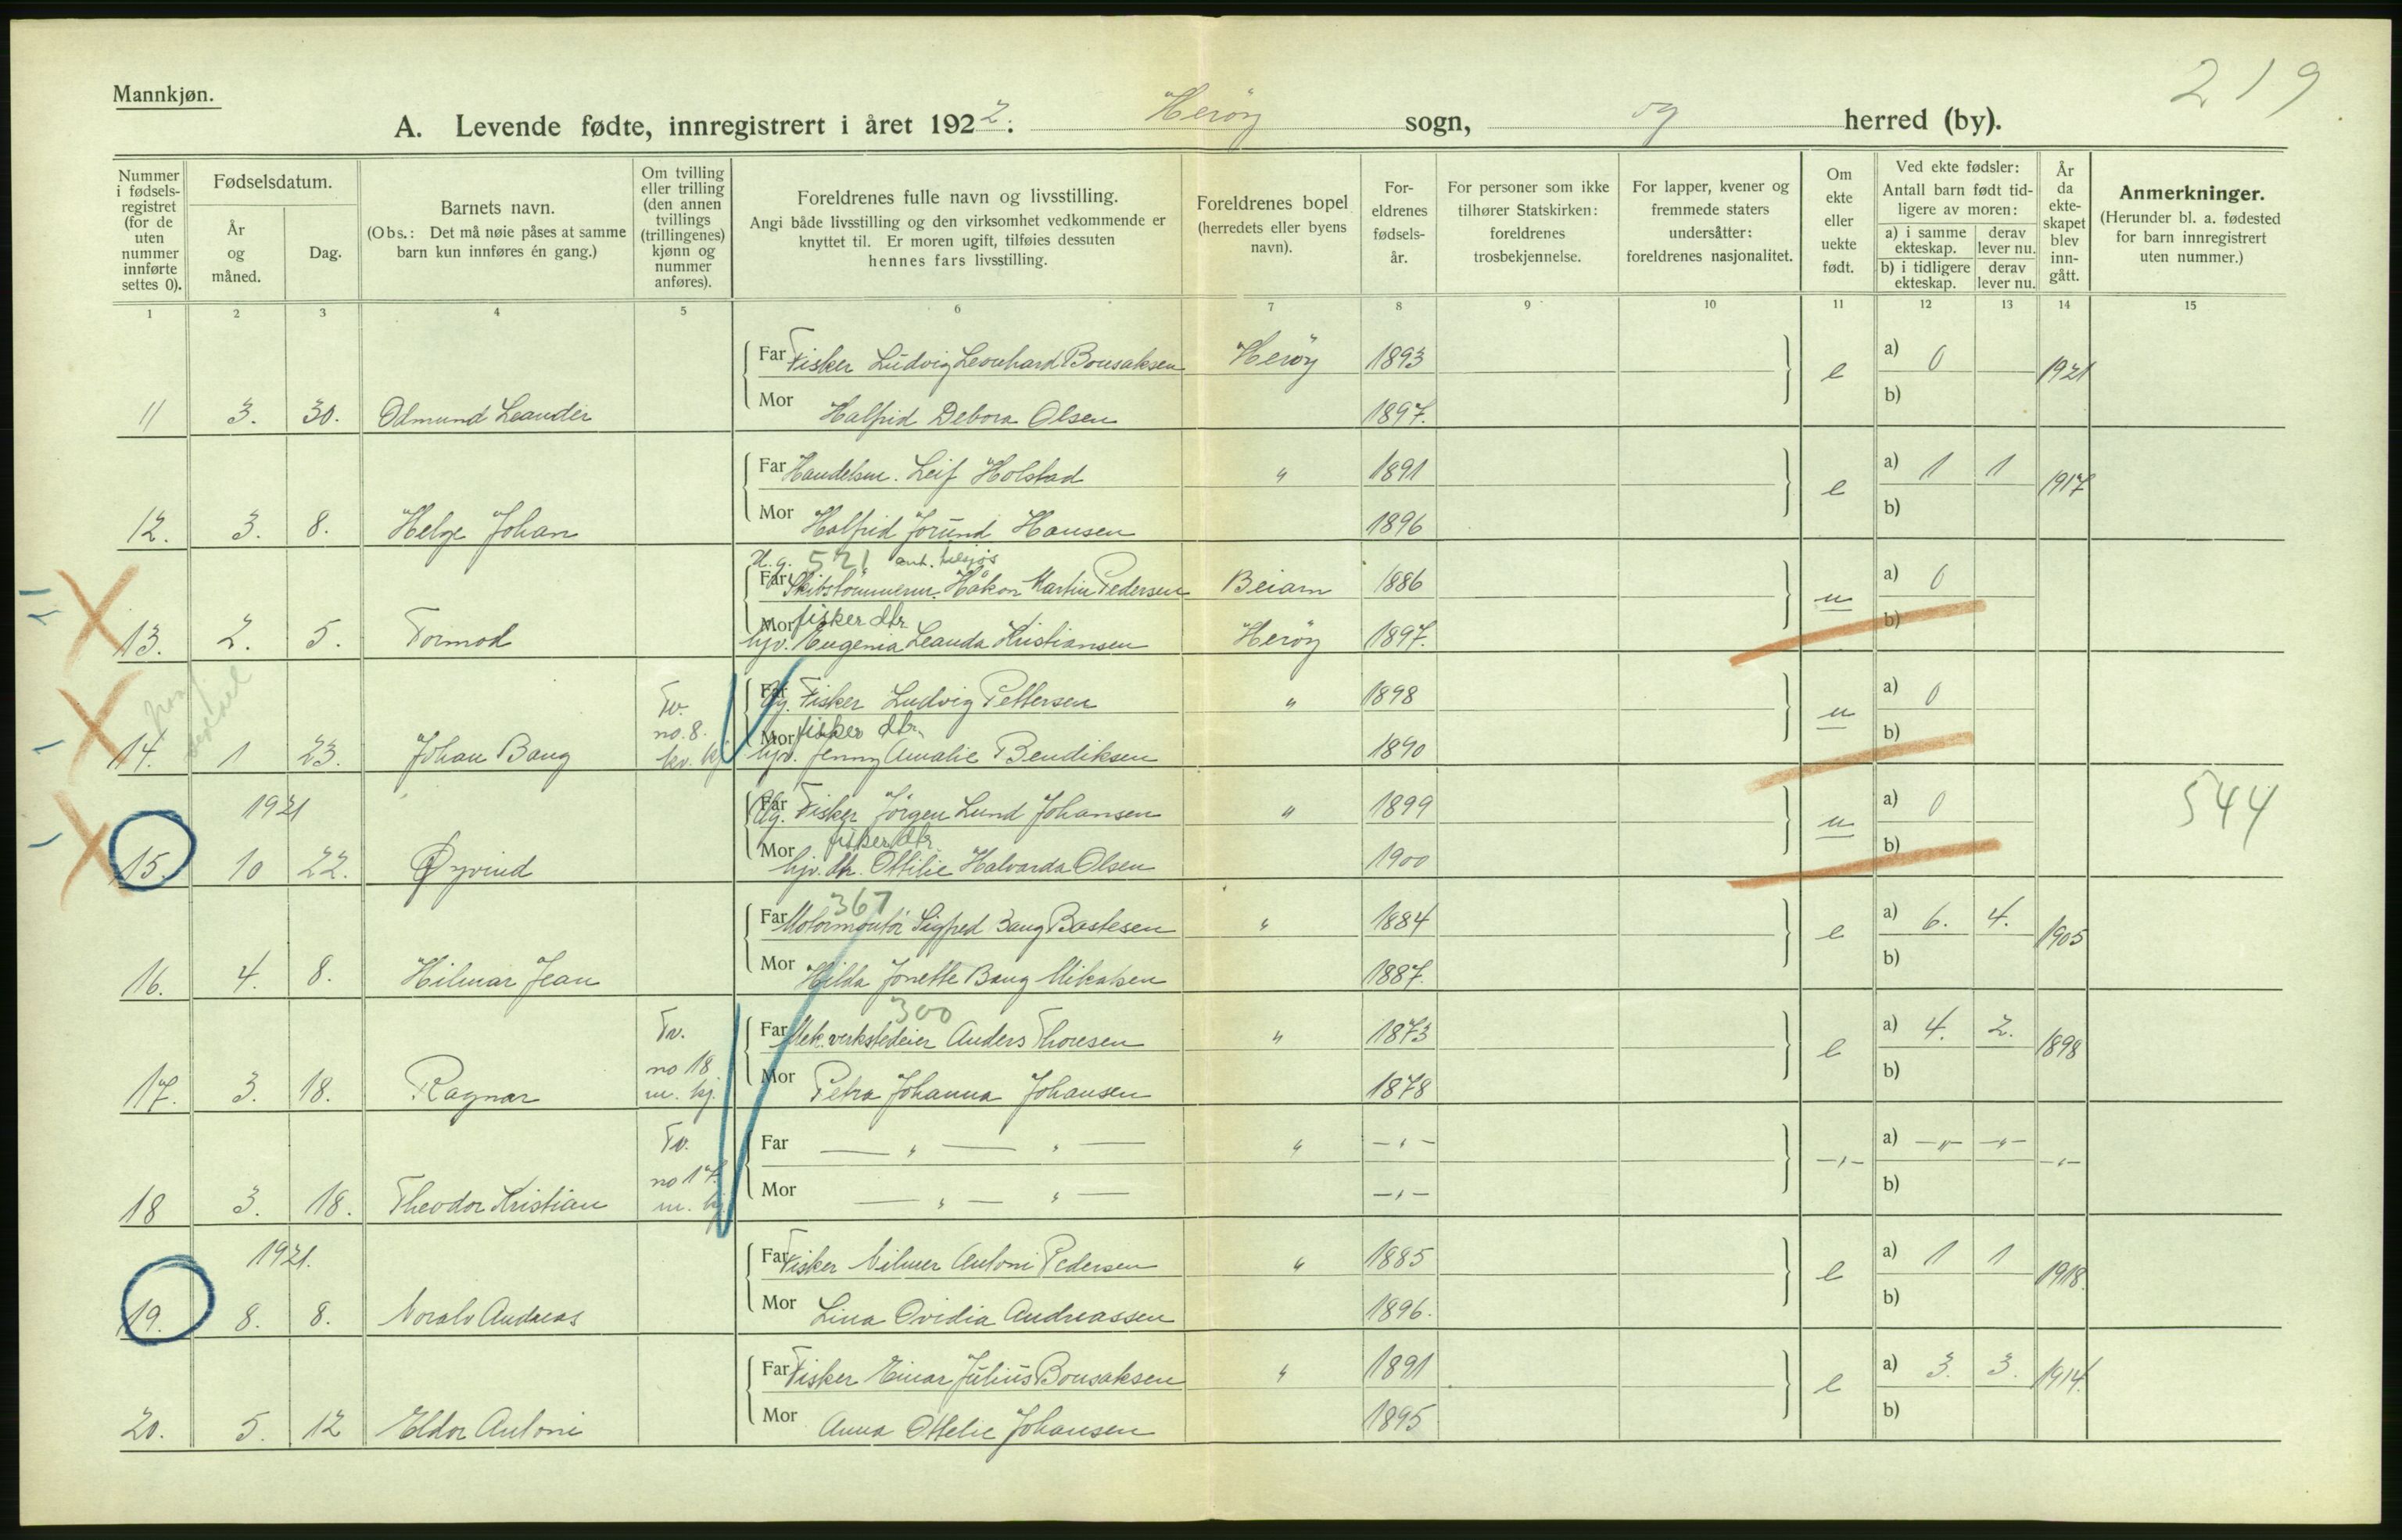 219
Mannkjøn.
A. Levende fødte, innregistrert i året 1922. Herøy sogn, og herred (by).
Nummer i fødselsregistret (for de uten nummer innførte settes 0).
Fødselsdatum.
År og måned.
Dag.
Barnets navn.
(Obs.: Det må nøie påses at samme barn kun innføres én gang.)
Om tvilling eller trilling (den annen tvillings (trillingenes) kjønn og nummer anføres).
Foreldrenes fulle navn og livsstilling.
Angi både livsstilling og den virksomhet vedkommende er knyttet til. Er moren ugift, tilføies dessuten hennes fars livsstilling.
Foreldrenes bopel (herredets eller byens navn).
Foreldrenes fødselsår.
For personer som ikke tilhører Statskirken: foreldrenes trosbekjennelse.
For lapper, kvener og fremmede staters undersåtter: foreldrenes nasjonalitet.
Om ekte eller uekte født.
Ved ekte fødsler:
Antall barn født tidligere av moren:
a) i samme ekteskap.
derav lever nu.
b) i tidligere ekteskap.
derav lever nu.
År da ekteskapet blev inngått.
Anmerkninger.
(Herunder bl. a. fødested for barn innregistrert uten nummer.)
1 2 3 4 5 6 7 8 9 10 11 12 13 14 15
Far Fisker Ludvig Leonhard Bonsaksen Herøy 1893 e a) 0 1921
11 3. 30. Odmund Leander Mor Halfrid Debora Olsen 1897. b)
Far Handelsm. Leif Holstad " 1891 e a) 1 1 1917
12. 3. 8. Helge Johan Mor Halfrid Jorund Hansen 1896 b)
521
Far Skibstømmerm. Håkon Martin Pedersen Beiarn 1886 u a) 0
fisker dtr.
13. 2. 5. Tormod Mor hjv. Eugenia Leanda Kristiansen Herøy 1897. b)
Tv. Far Ug. Fisker Ludvig Pettersen " 1898 u a) 0
no. 8. fisker dtr.
14. 1 23. Johan Bang kv. kj Mor hjv. Jenny Amalie Bendiksen 1890 b)
1921 Far Ug. Fisker Jørgen Lund Johansen " 1899 u a) 0 544
fisker dtr.
15. 10 22. Øyvind Mor hjv. dtr. Ottilie Halvarda Olsen 1900 b)
367
Far Motormontør Sigfred Bang Bastesen " 1884 e a) 6. 4. 1905
16. 4. 8. Hilmar Jean Mor Hilda Jonette Bang Mikalsen 1887. b)
300
Tv. Far Mek. verkstedeier Anders Thoresen " 1873 e a) 4. 2. 1898
no 18
17. 3. 18. Ragnar m. kj. Mor Petra Johanna Johansen 1878 b)
Tv. Far — " — " — " — " — — " — a) — " — — " — — " —
no 17.
18 3. 18. Theodor Kristian m. kj Mor — " — " — — " — b)
1921. Far Fisker Hilmer Antoni Pedersen " 1885 e a) 1 1 1918
19. 8. 8. Noralv Andreas Mor Lina Ovidia Andreassen 1896. b)
Far Fisker Einar Julius Bonsaksen " 1891 e a) 3. 3. 1914.
20. 5. 12 Eldor Antoni Mor Anna Ottelie Johansen 1895 b)